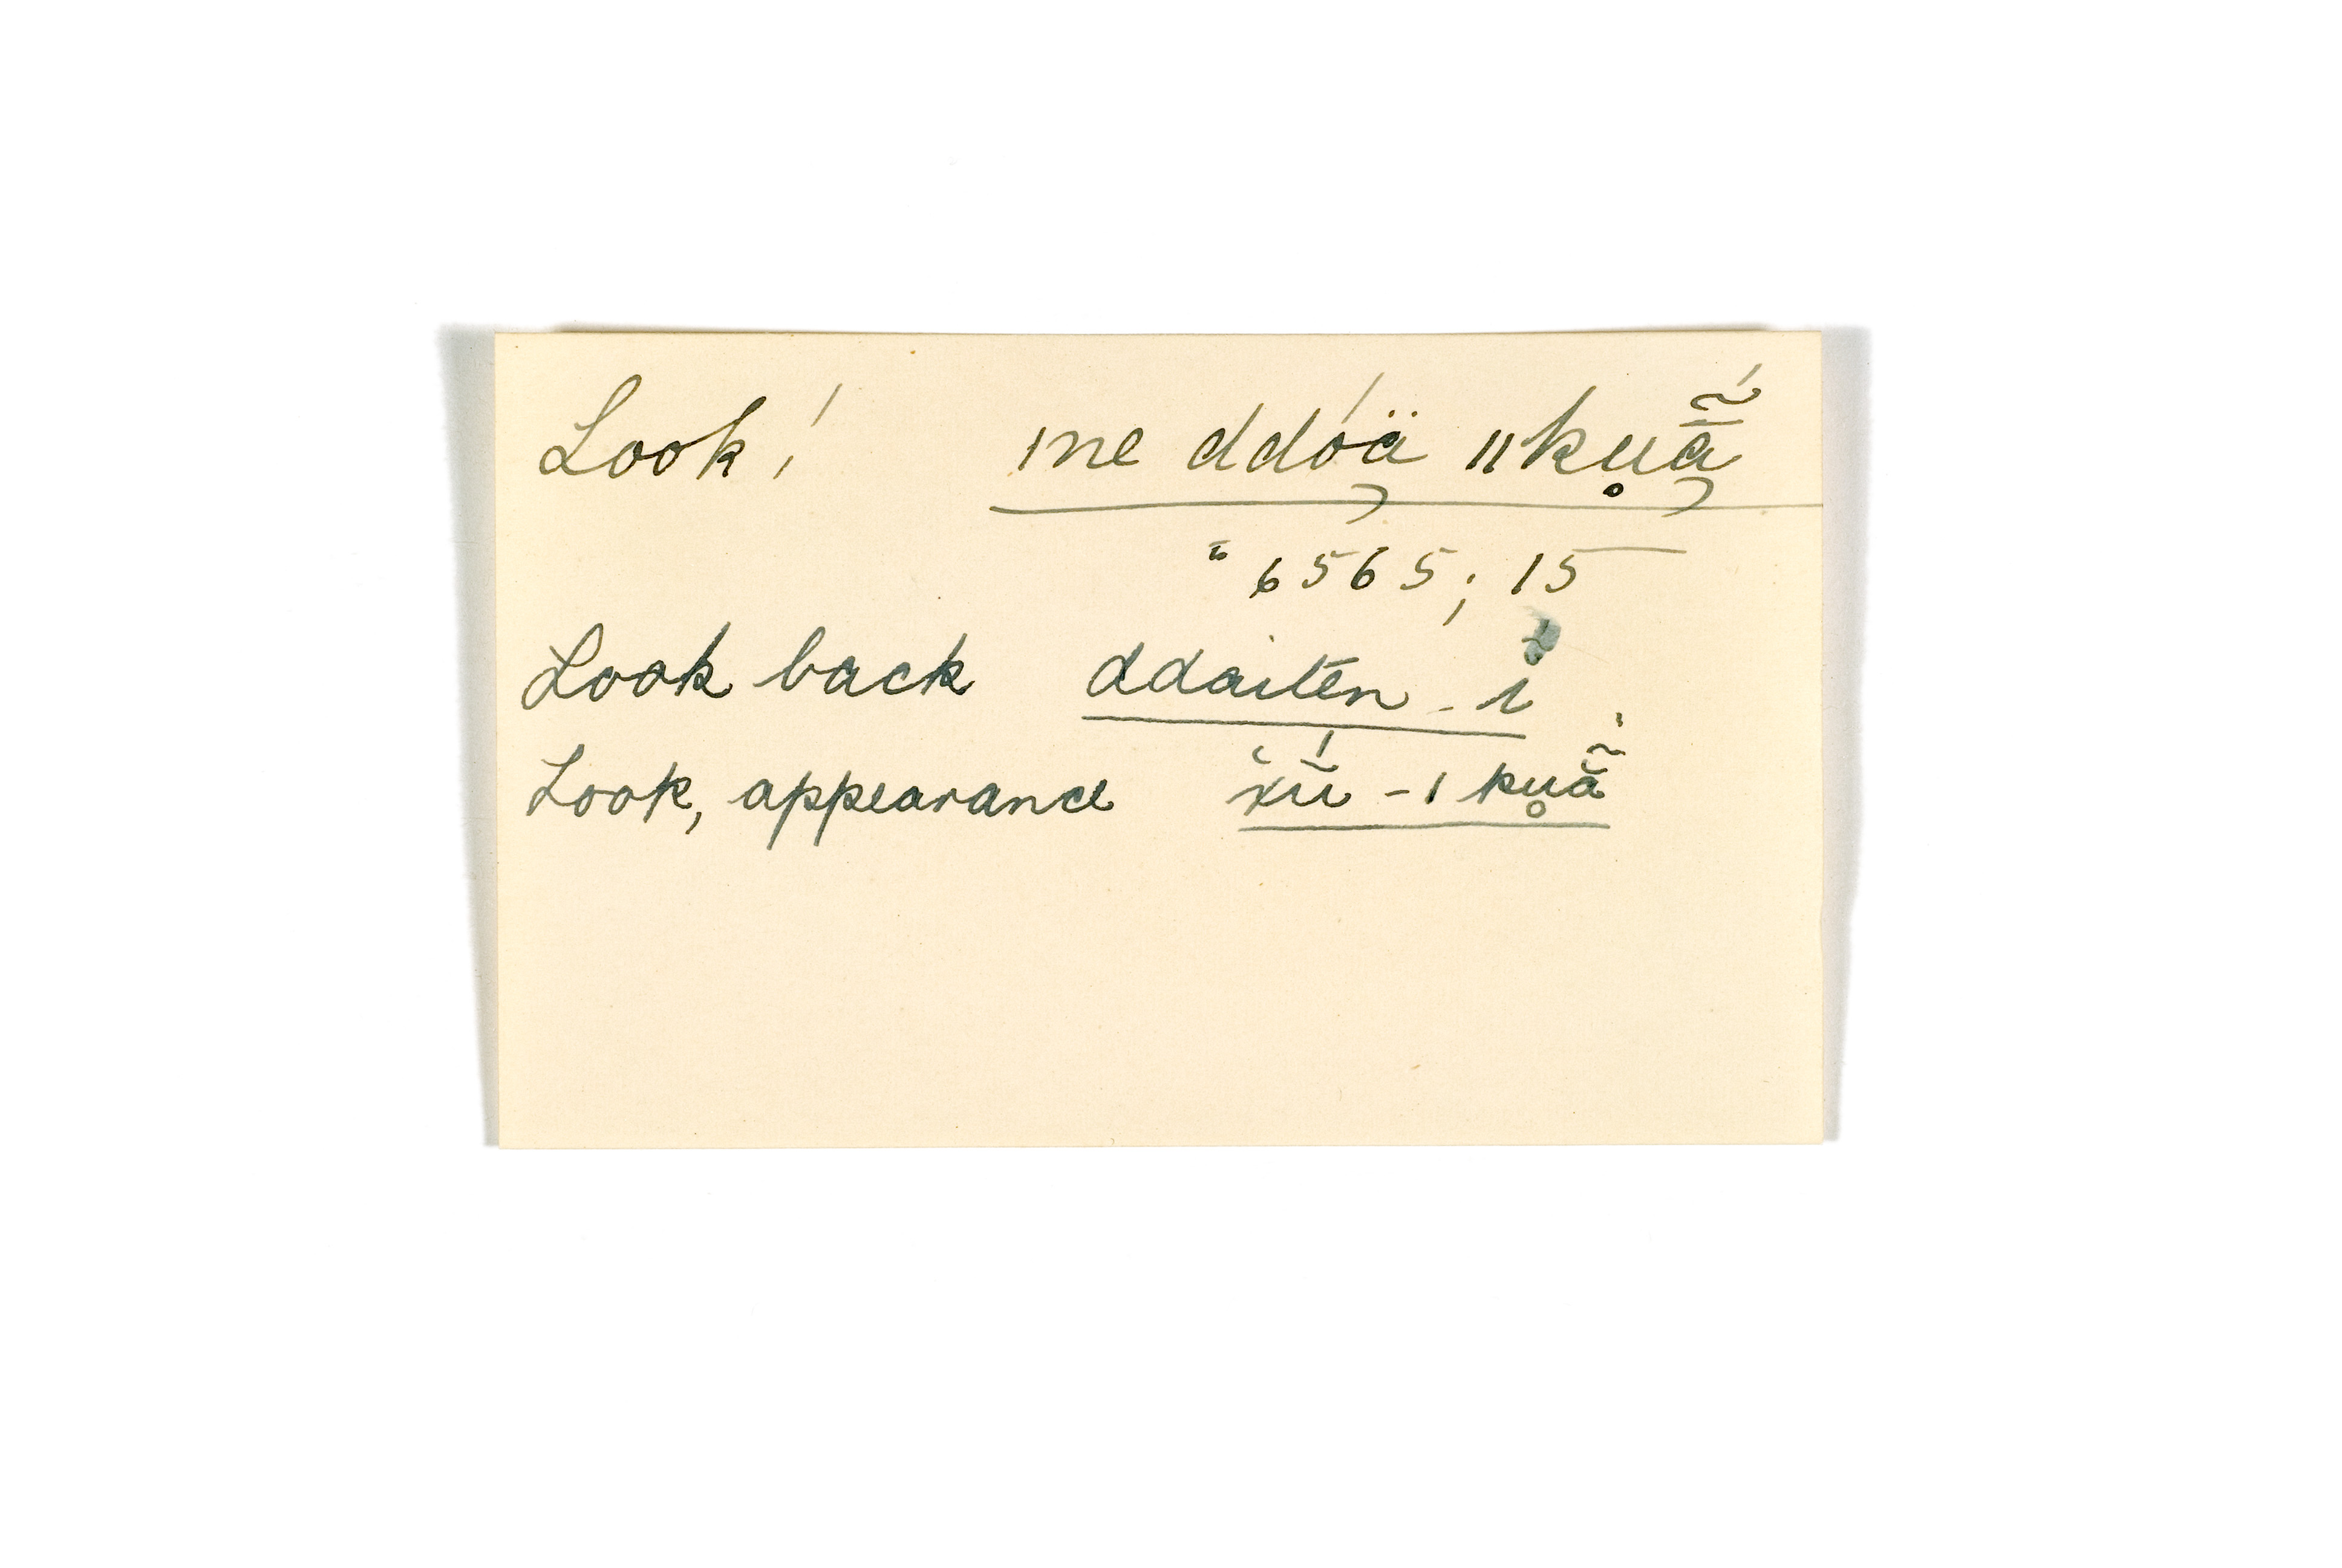 Look! ıne ddóą̈ ıık̥ųā̃́
6565; 15
Look back ddaitēn - ĩ́
Look, appearance x̌ū́ - ı ku̥ā̃́